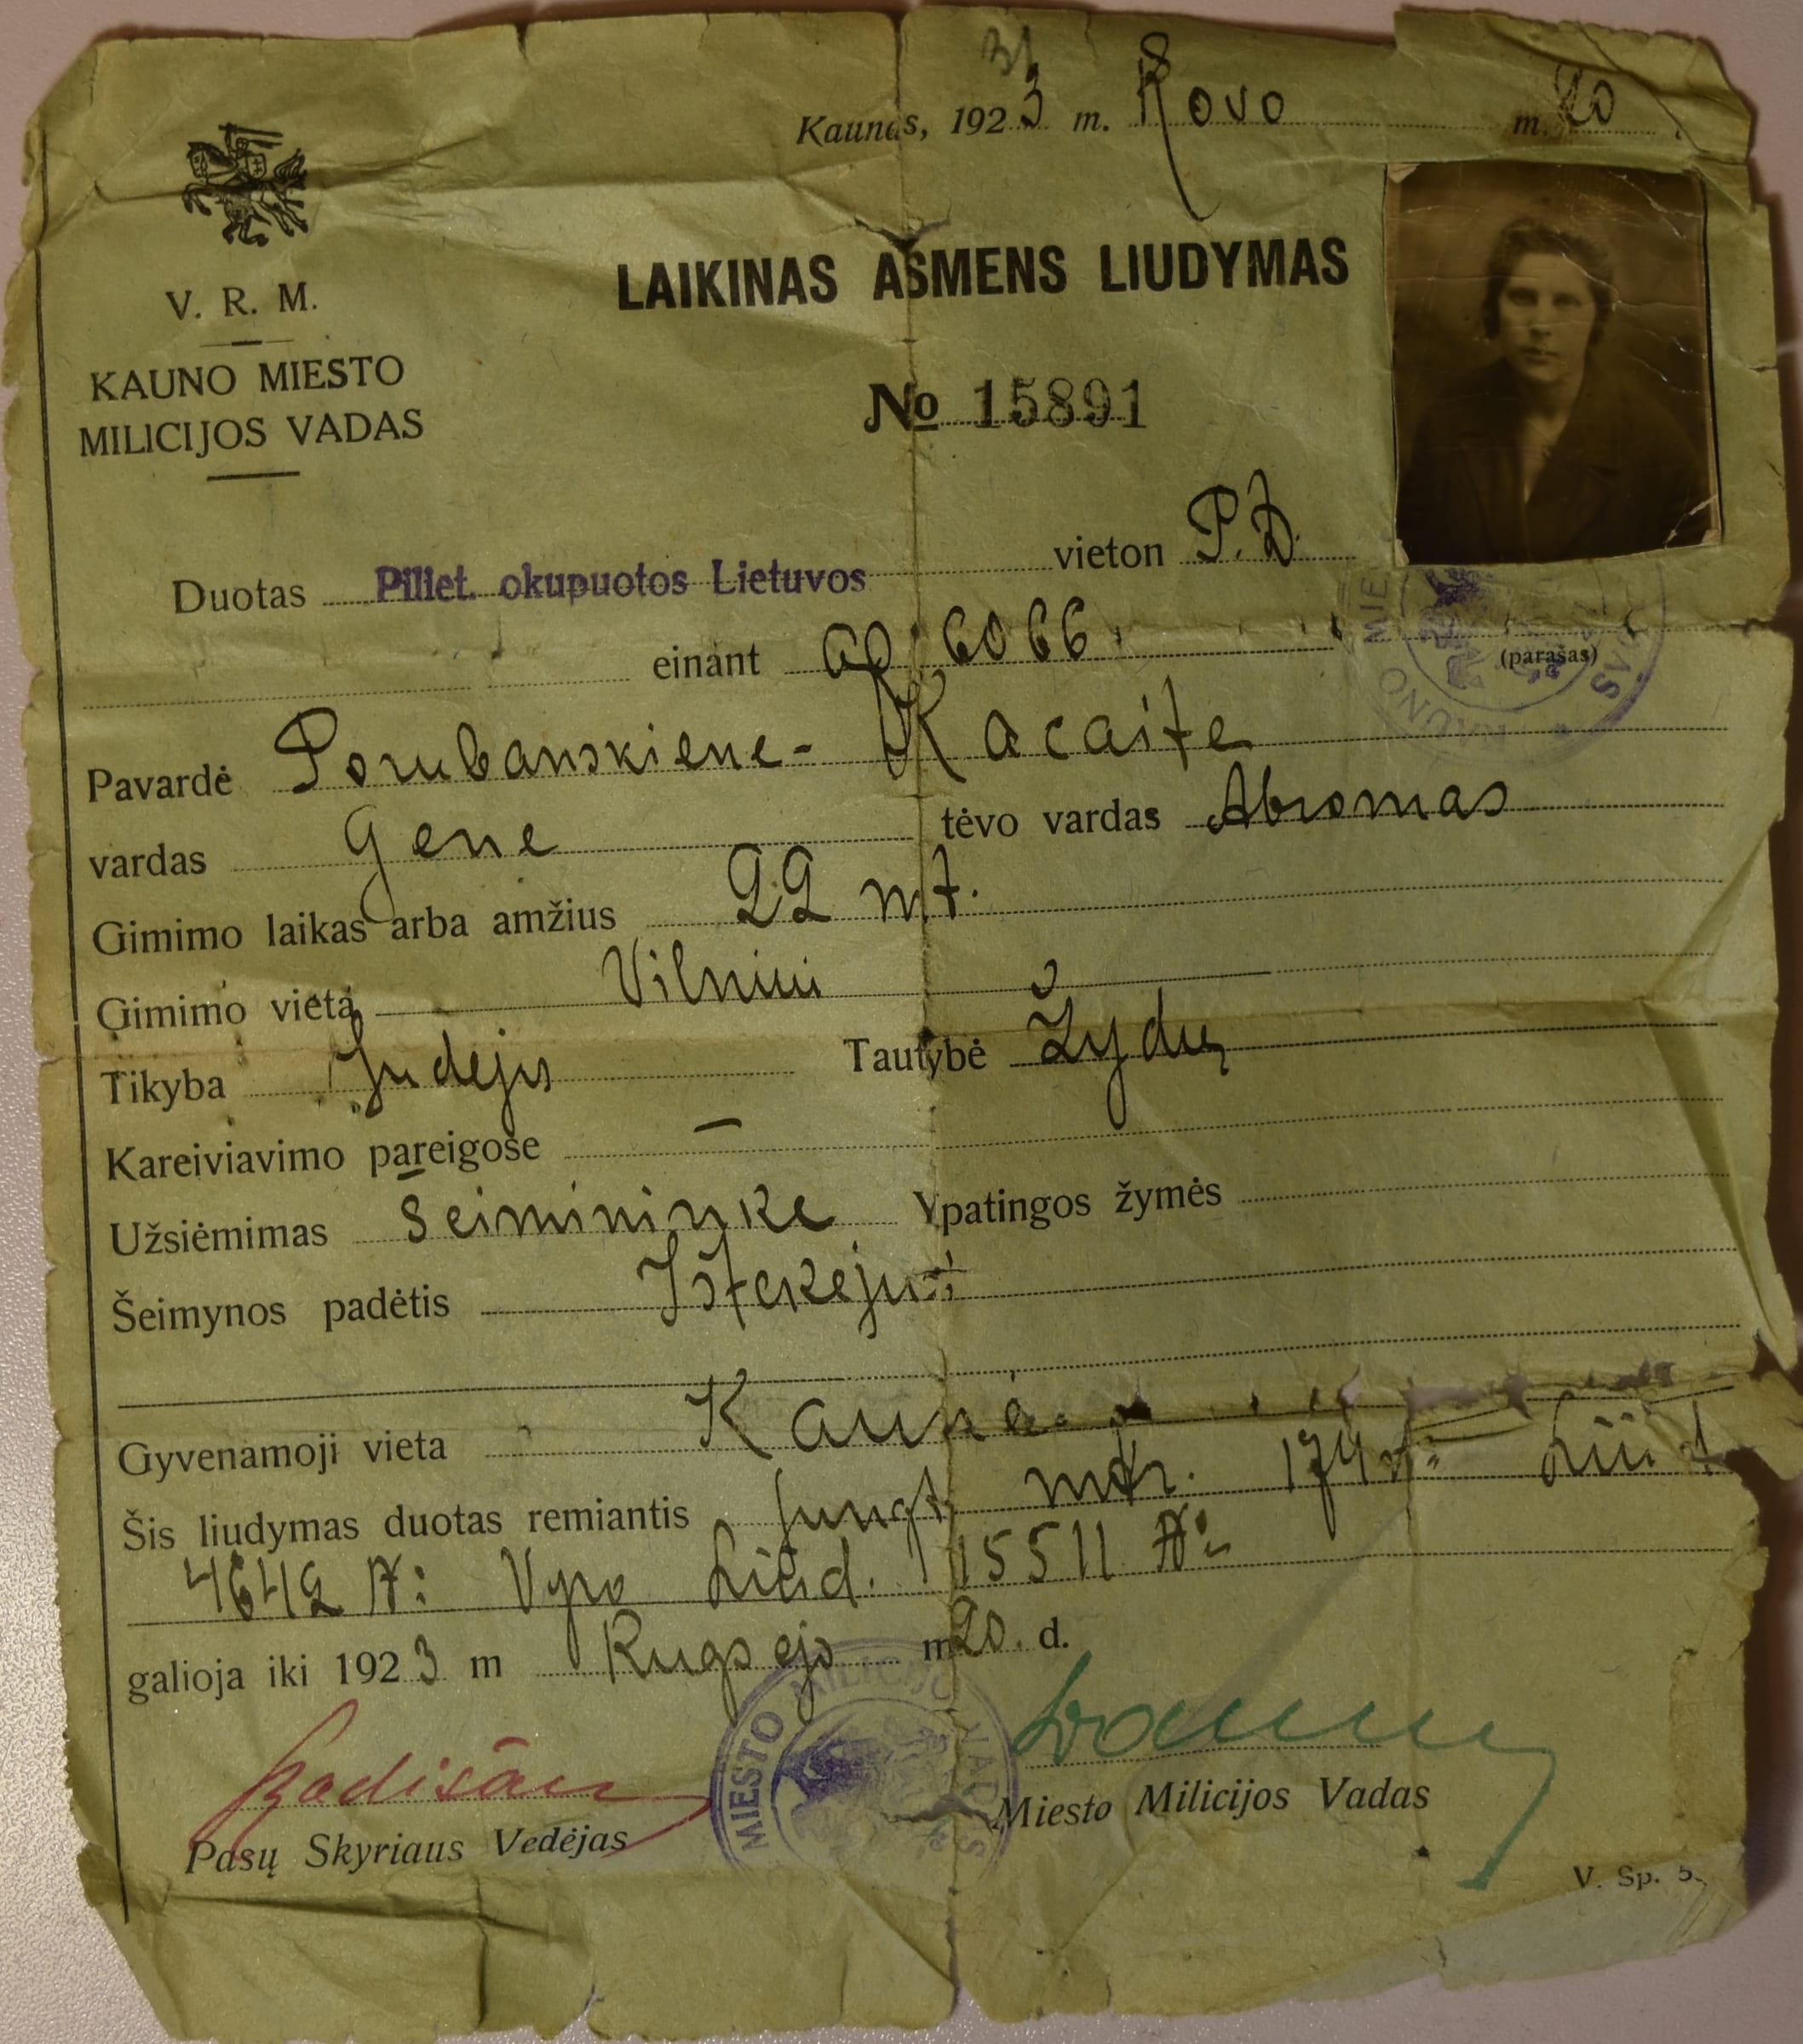 31
Kaunas, 1923 m. Kovo m. 20
V. R. M.
KAUNO MIESTO
MILICIJOS VADAS
LAIKINAS ASMENS LIUDYMAS
№ 15891
Duotas Piliet. okupuotos Lietuvos vieton P.L.
einant 6066
(parašas)
Pavardė Porubanskiene- Kacaite
vardas Gene tėvo vardas Abromas
Gimimo laikas arba amžius 22 mt.
Gimimo vieta Vilniui
Tikyba Judėjų Tautybė Žydų
Kareiviavimo pareigose —
Užsiėmimas Šeimininke Ypatingos žymės
Šeimynos padėtis Ištekėjusi
Gyvenamoji vieta Kaune
Šis liudymas duotas remiantis Jungt. mtr. 174 №: Liud.
4642 №: Vyro Liud. 15511 №:
galioja iki 1923 m Rugsėjo m 20. d.
MIESTO MILICIJOS VADAS
Pasų Skyriaus Vedėjas
Miesto Milicijos Vadas
V. Sp. 5.